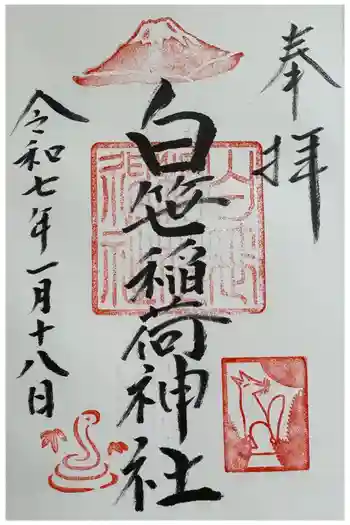 奉拝
白笹稲荷神社
令和七年一月十八日